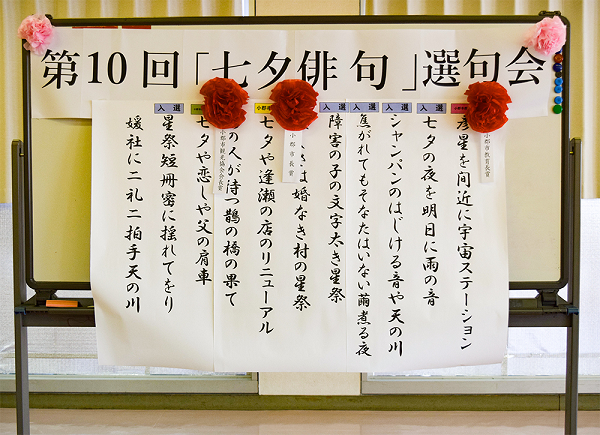 第10回「七夕俳句」選句会
小郡市教育長賞
彦星を間近に宇宙ステーション
入選
七夕の夜を明日に雨の音
入選
シャンパンのはじける音や天の川
入選
焦がれてもそなたはいない繭煮る夜
入選
障害の子の文字太き星祭
小郡市長賞
は婚なき村の星祭
七夕や逢瀬の店のリニューアル
の人が待つ鵲の橋の果て
小郡市観光協会会長賞
七夕や恋しや父の肩車
入選
星祭短冊密に揺れてをり
媛社に二礼二拍手天の川